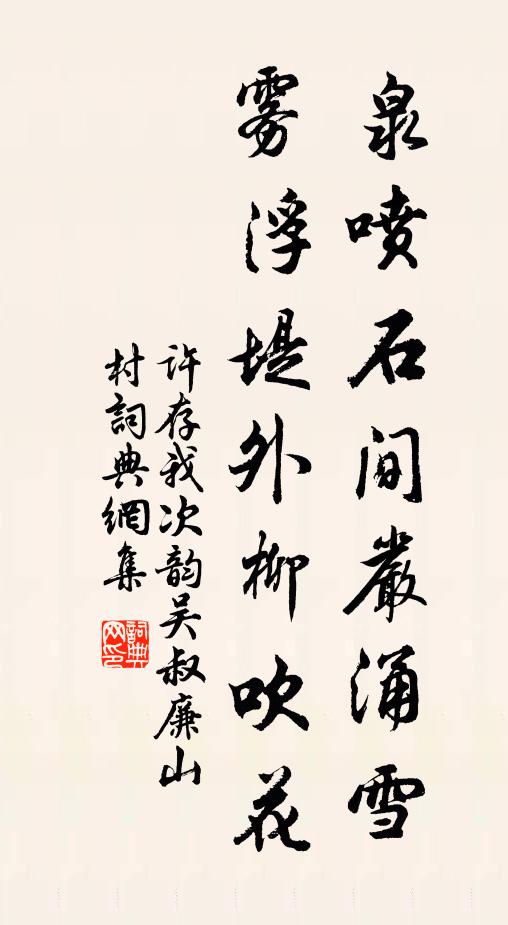 泉喷石间严涌雪
雾浮堤外柳吹花
许存我次韵吴叔廉山
村詞典網集
詞典網印